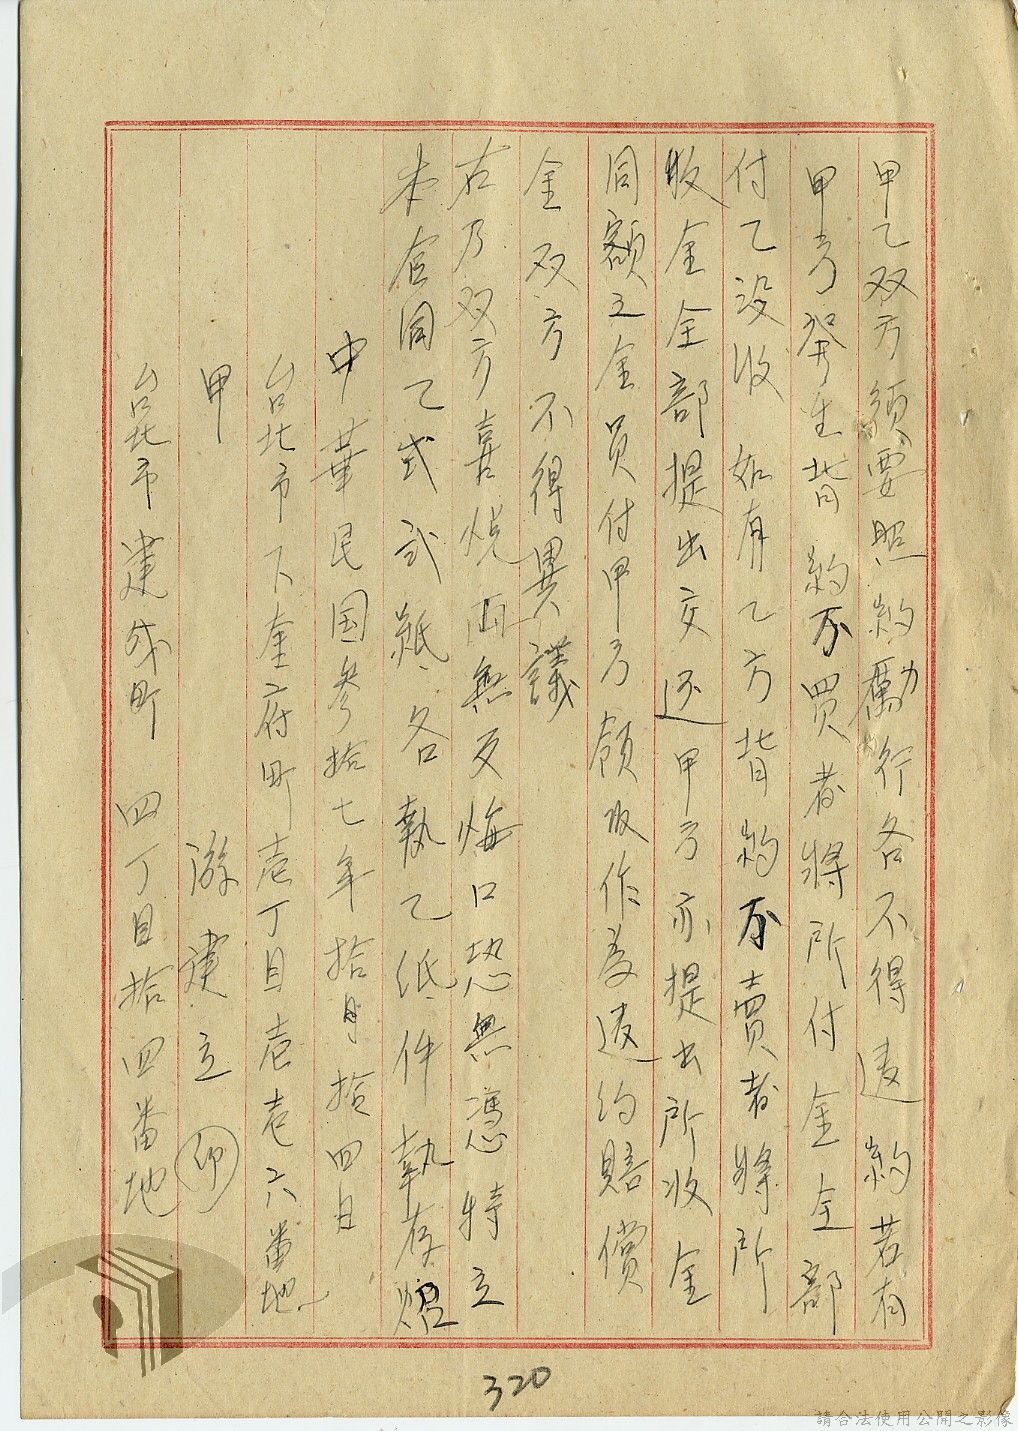 甲乙双方須要照約勵行各不得違約若有
甲方發生背約不買者將所付金全部
付乙没收　如有乙方背約不賣者將所
收金全部提出交还甲方亦提出所收金
同額之金員付甲方領收作為違約賠償
金双方不得異議
右乃双方喜悦両無反悔口恐無憑特立
本合同乙式弍紙各執乙紙件執存炤
中華民国參拾七年拾月拾四日
台北市下奎府町壱丁目壱壱六番地
甲　游建立 印
台北市建成町　四丁目拾四番地
320
請合法使用公開之影像